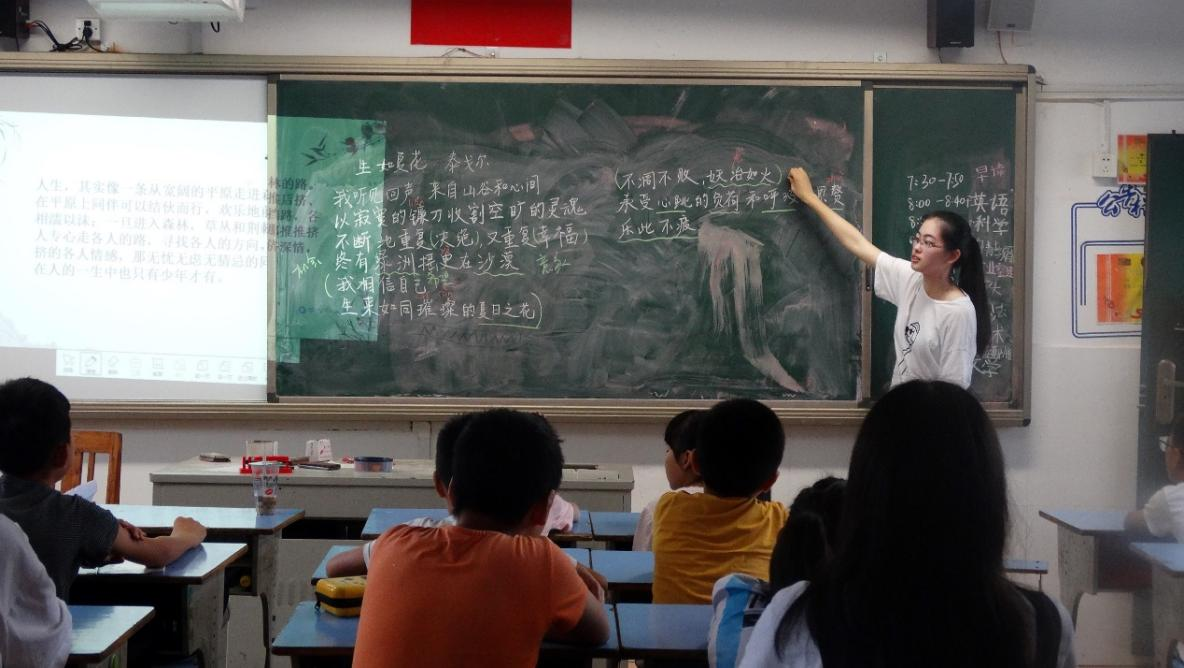 人生，其实像一条从宽阔的平原走进森林的路。
在平原上同伴可以结伙而行，欢乐地前推后挤、
相濡以沫；一旦进入森林，草丛和荆棘挡路，各
人专心走各人的路，寻找各人的方向，
挤的各人情感，那无忧无虑无猜忌的同
在人的一生中也只有少年才有。
生如夏花 泰戈尔
我听见回声，来自山谷和心间
以寂寞的镰刀收割空旷的灵魂
不断地重复(决绝),又重复(幸福)
终有绿洲摇曳在沙漠
(我相信自己
生来如同璀璨的夏日之花)
(不凋不败,妖冶如火)
承受心跳的负荷和呼 累赘
乐此不疲
早读
7:30-7:50
8:00-8:40
英语
科学
术